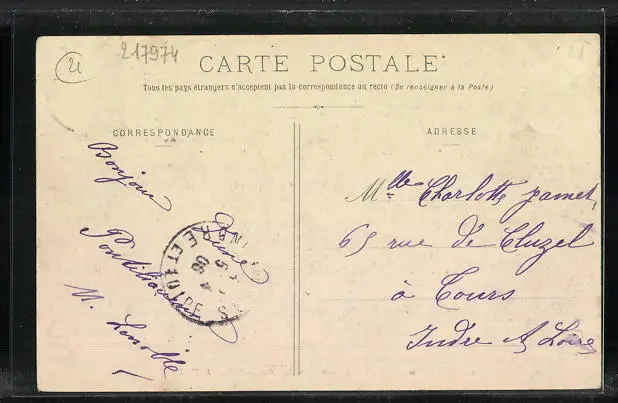 21
217974
CARTE POSTALE
Tous les pays étrangers n'acceptent pas la correspondance au recto (Se renseigner à la Poste)
CORRESPONDANCE
ADRESSE
Bonjour
d'une
M. Lenoble
Mlle Charlotte Jamet
65 rue de Cluzel
à Tours
Indre et Loire
ET LOIRE